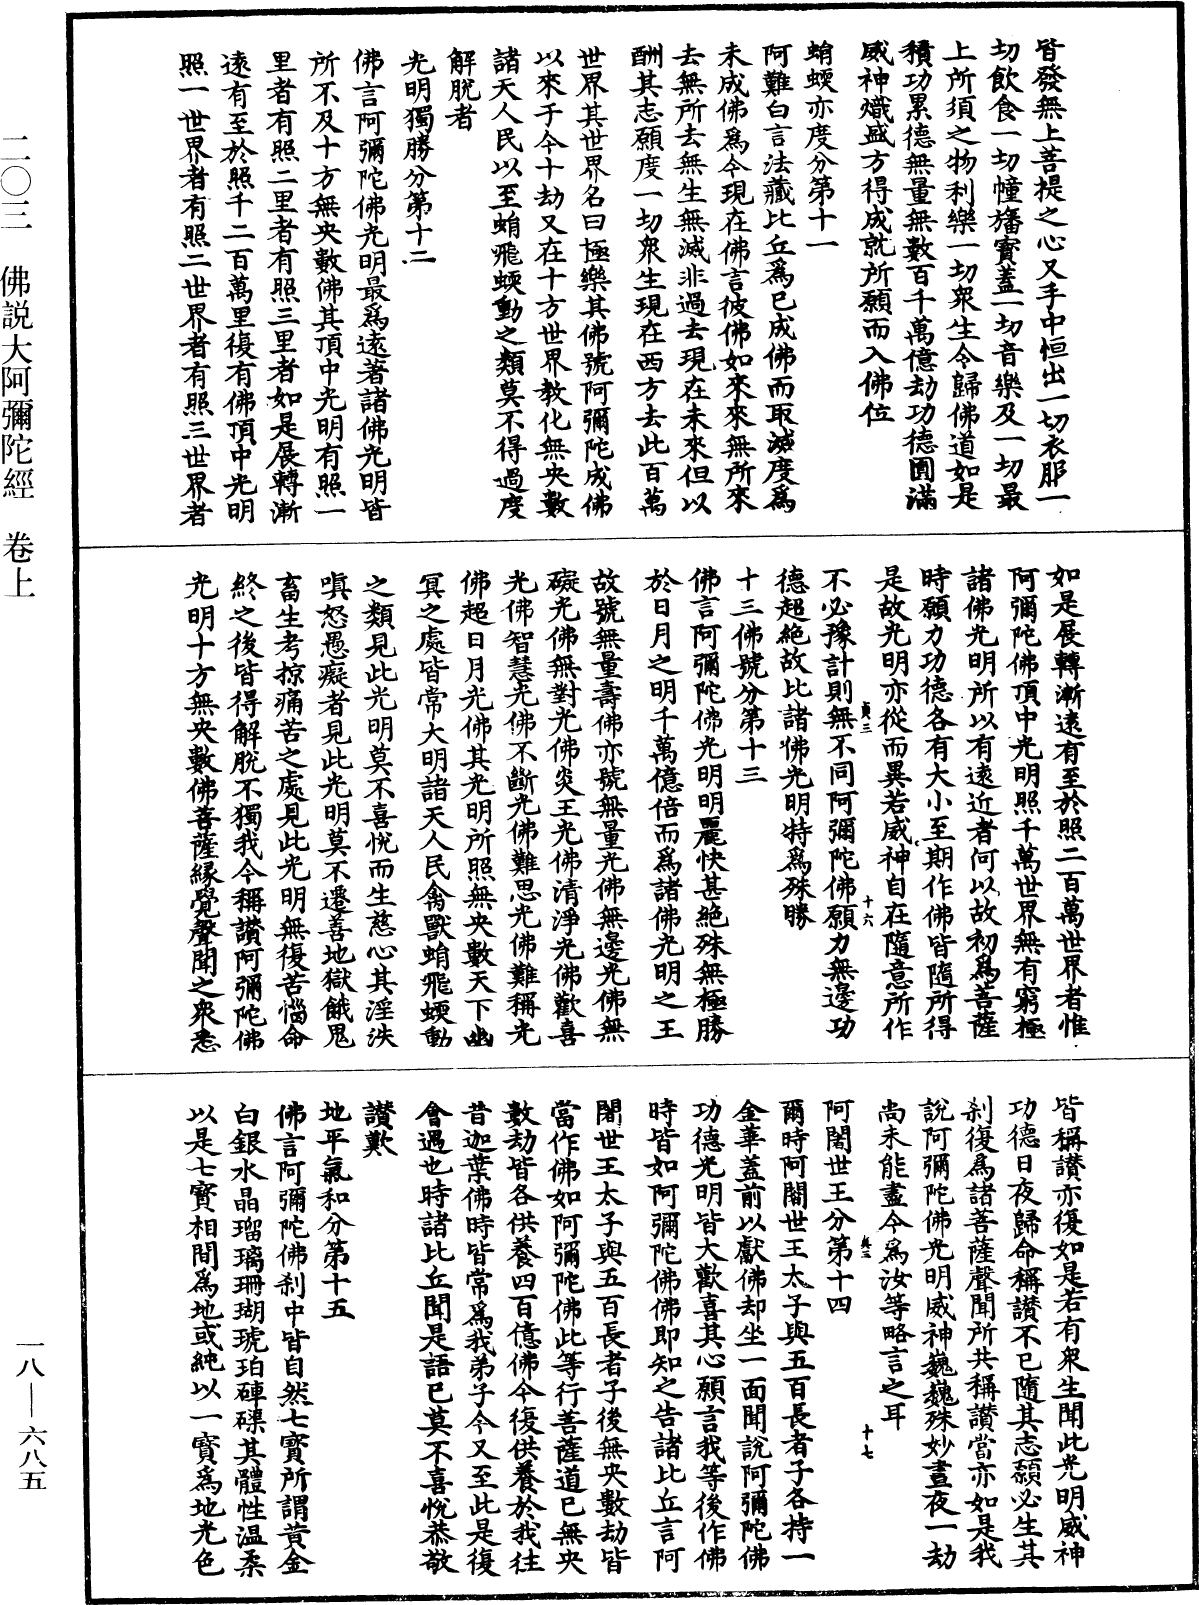 皆發無上菩提之心又手中恒出一切衣服一
切飲食一切幢旛寶蓋一切音樂及一切最
上所須之物利樂一切衆生令歸佛道如是
積功累德無量無數百千萬億劫功德圓滿
威神熾盛方得成就所願而入佛位
蜎蝡亦度分第十一
阿難白言法藏比丘爲已成佛而取滅度爲
未成佛爲今現在佛言彼佛如來來無所來
去無所去無生無滅非過去現在未來但以
酬其志願度一切衆生現在西方去此百萬
世界其世界名曰極樂其佛號阿彌陀成佛
以來于今十劫又在十方世界教化無央數
諸天人民以至蜎飛蝡動之類莫不得過度
解脫者
光明獨勝分第十二
佛言阿彌陀佛光明最爲遠著諸佛光明皆
所不及十方無央數佛其頂中光明有照一
里者有照二里者有照三里者如是展轉漸
遠有至於照千二百萬里復有佛頂中光明
照一世界者有照二世界者有照三世界者
如是展轉漸遠有至於照二百萬世界者惟
阿彌陀佛頂中光明照千萬世界無有窮極
諸佛光明所以有遠近者何以故初爲菩薩
時願力功德各有大小至期作佛皆隨所得
是故光明亦從而異若威神自在隨意所作
貞三
十六
不必豫計則無不同阿彌陀佛願力無邊功
德超絶故比諸佛光明特爲殊勝
十三佛號分第十三
佛言阿彌陀佛光明明麗快甚絶殊無極勝
於日月之明千萬億倍而爲諸佛光明之王
故號無量壽佛亦號無量光佛無邊光佛無
礙光佛無對光佛炎王光佛清淨光佛歡喜
光佛智慧光佛不斷光佛難思光佛難稱光
佛超日月光佛其光明所照無央數天下幽
冥之處皆常大明諸天人民禽獸蜎飛蝡動
之類見此光明莫不喜悅而生慈心其淫泆
嗔怒愚癡者見此光明莫不遷善地獄餓鬼
畜生考掠痛苦之處見此光明無復苦惱命
終之後皆得解脫不獨我今稱讃阿彌陀佛
光明十方無央數佛菩薩緣覺聲聞之衆悉
皆稱讃亦復如是若有衆生聞此光明威神
功德日夜歸命稱讃不已隨其志願必生其
刹復爲諸菩薩聲聞所共稱讃當亦如是我
說阿彌陀佛光明威神巍巍殊妙晝夜一劫
尚未能盡今爲汝等略言之耳
十七
阿闍世王分第十四
爾時阿闍世王太子與五百長者子各持一
金華蓋前以獻佛却坐一面聞說阿彌陀佛
功德光明皆大歡喜其心願言我等後作佛
時皆如阿彌陀佛佛即知之告諸比丘言阿
闍世王太子與五百長者子後無央數劫皆
當作佛如阿彌陀佛此等行菩薩道已無央
數劫皆各供養四百億佛今復供養於我往
昔迦葉佛時皆常爲我弟子今又至此是復
會遇也時諸比丘聞是語已莫不喜悅恭敬
讃歎
地平氣和分第十五
佛言阿彌陀佛刹中皆自然七寳所謂黄金
白銀水晶瑠璃珊瑚琥珀硨磲其體性温柔
以是七寳相間爲地或純以一寳爲地光色
二〇三　佛説大阿彌陀經　卷上
一八—六八五